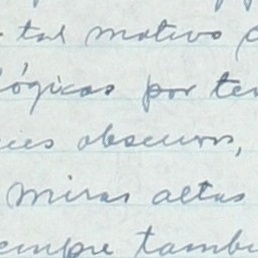 tal motivo
lógicas por te
ces obscuros,
miras altas
empre tambi